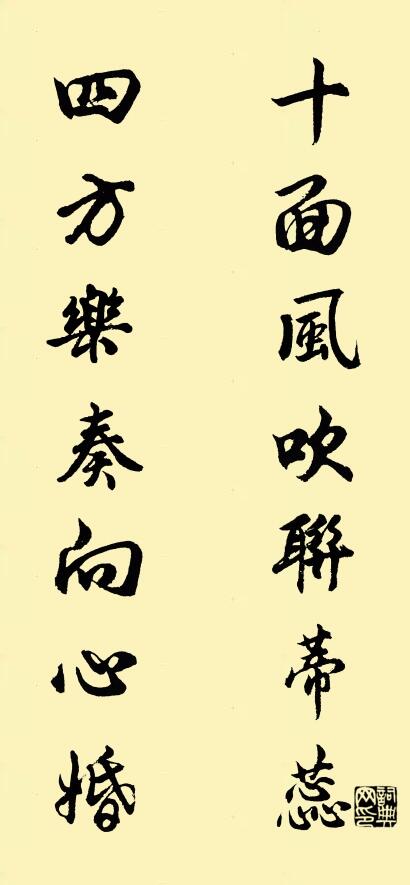 十面風吹聯蒂蕊
四方樂奏向心婚
詞典网印